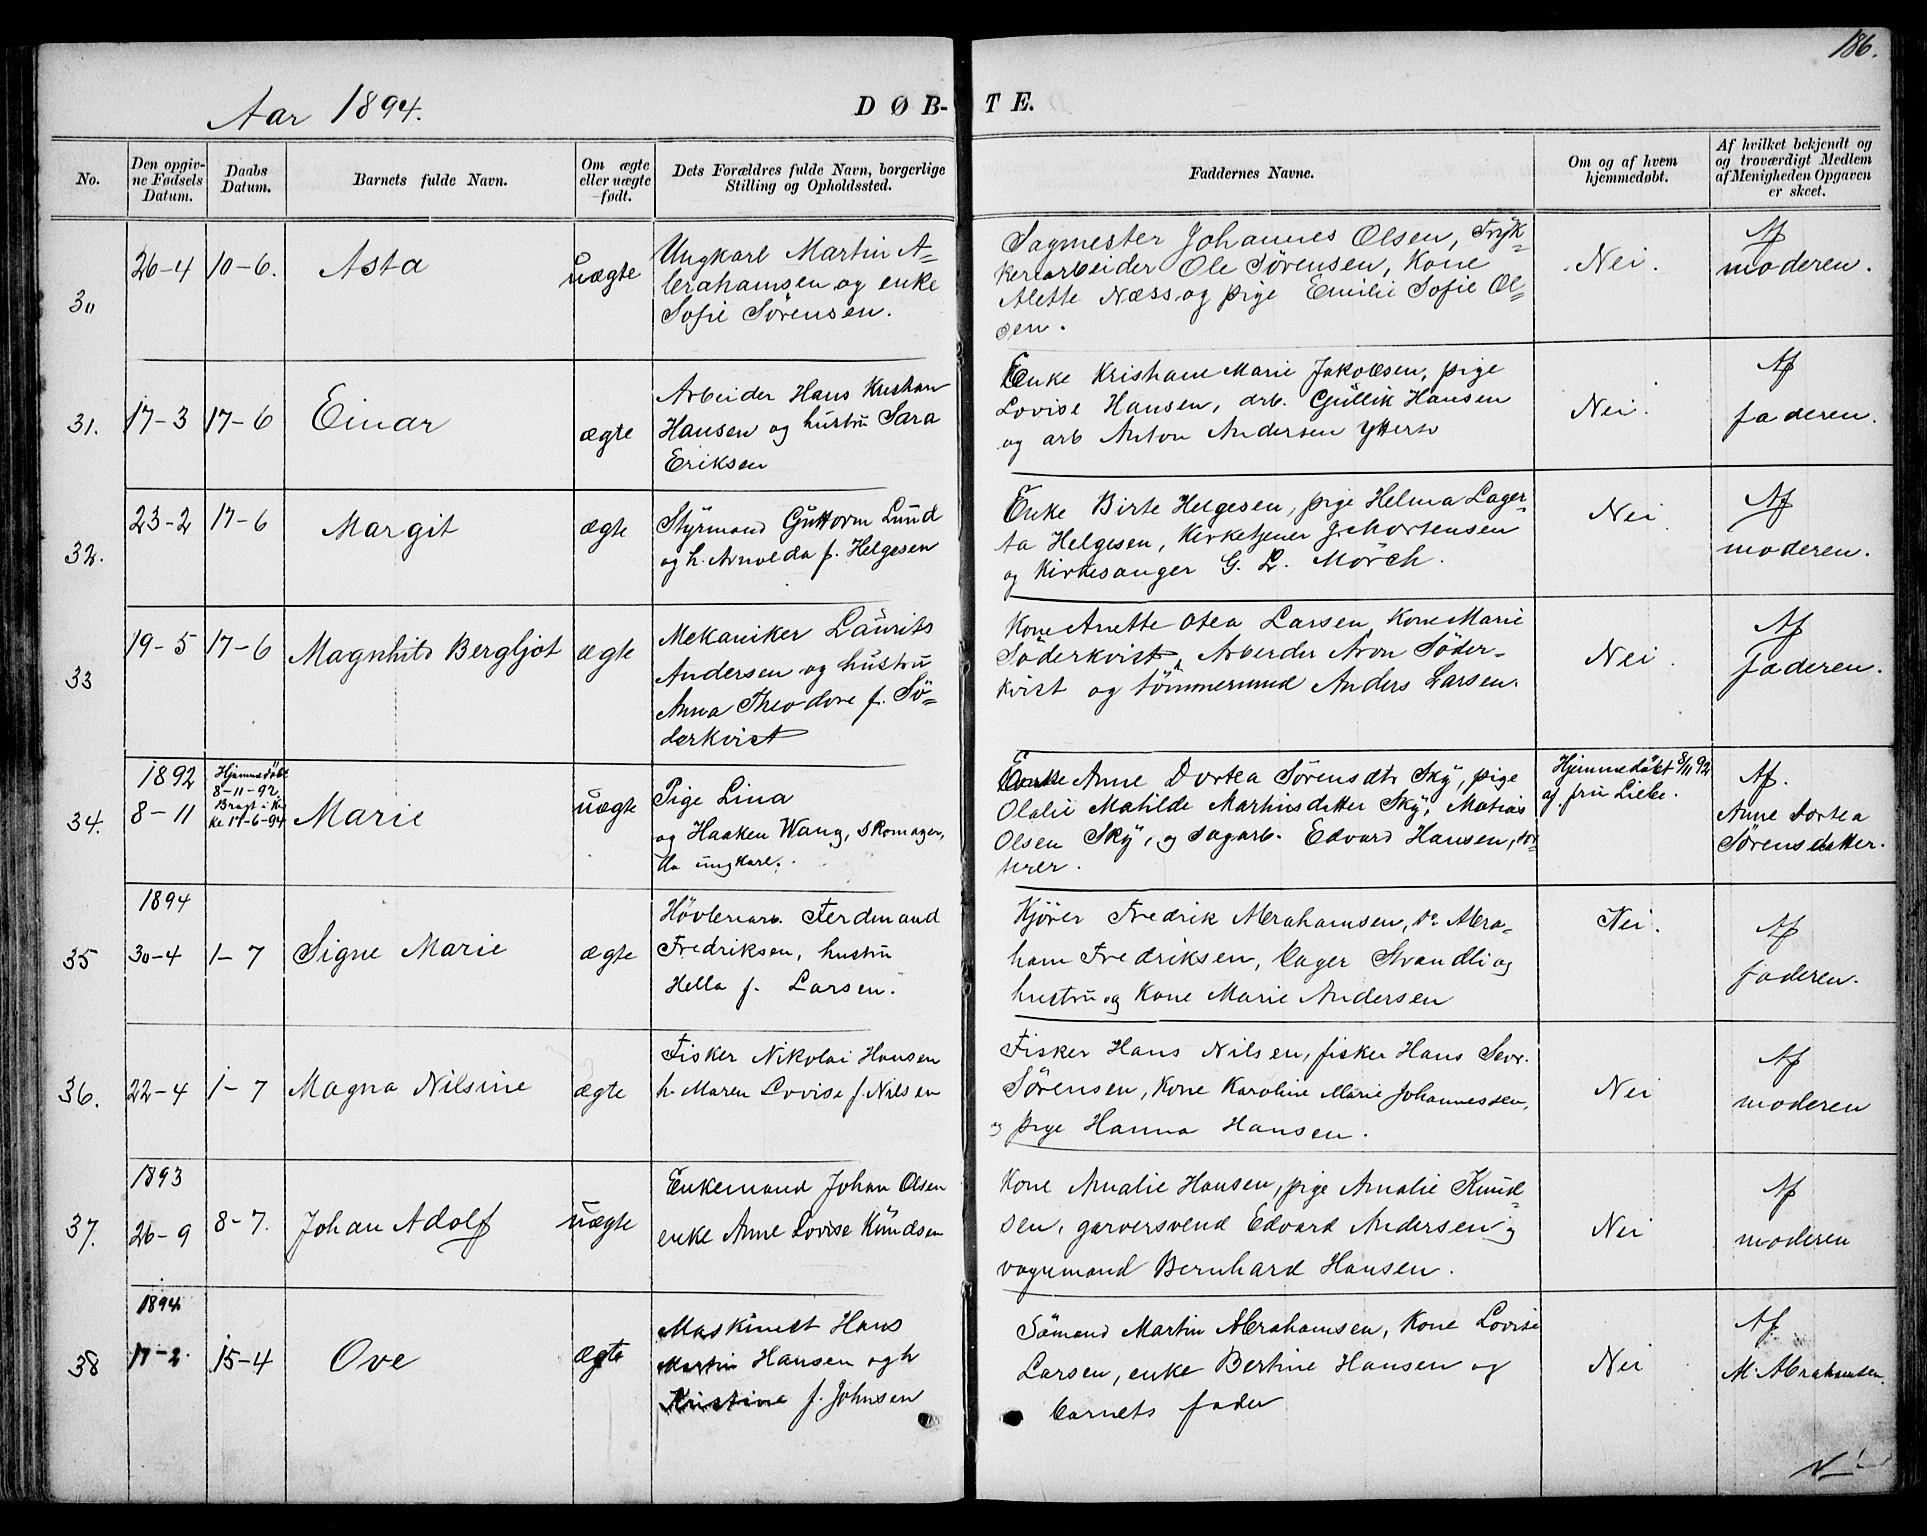 186.
Aar 1894.
DØB-TE.
No.
Den opgiv-
ne Fødsels
Datum.
Daabs
Datum.
Barnets fulde Navn.
Om ægte
eller uægte
født.
Dets Forældres fulde Navn, borgerlige
Stilling og Opholdssted.
Faddernes Navne.
Om og af hvem
hjemmedøbt.
Af hvilket bekjendt og
og troværdigt Medlem
af Menigheden Opgaven
er skeet.
30
26-4
10-6.
Asta
uægte
Ungkarl Martin A=
brahamsen og enke
Sofie Sørensen.
Sagmester Johannes Olsen, Tryk=
keriarbeider Ole Sørensen, Kone
Alette Næss og pige Emilie Sofie Ol=
sen.
Nei.
Af
moderen.
31.
17-3
17-6
Einar
ægte
Arbeider Hans Kristian
Hansen og hustru Sara
Eriksen
Enke Kristiane Marie Jakobsen, pige
Lovise Hansen, arb. Gullik Hansen
og arb Anton Andersen
Nei.
Af
faderen.
32.
23-2
17-6
Margit
ægte
Styrmand Guttorm Lund
og h. Arnolda f. Helgesen
Enke Birte Helgesen, pige Helma Lager=
ta Helgesen, Kirketjener J. Mortensen
og Kirkesanger G. L. Mörch.
Nei.
Af
moderen.
33
19-5
17-6
Magnhild Bergljot
ægte
Mekaniker Laurits
Andersen og hustru
Anna Theodore f. Sö=
derkvist
Kone Anette Otea Larsen, Kone Marie
Söderkvist, Arbeider Aron Söder-
kvist og tömmermand Anders Larsen.
Nei.
Af
faderen.
34.
1892
8-11
Hjemmedöbt
8-11-92.
Bragt i Kir
ke 17-6-94
Marie
uægte
Pige Lina
og Haaken Wang, Skomager,
do ungkarl.
Enke Anne Dortea Sörensdtr Sky, pige
Olalie Matilde Martinsdatter Sky, Matias
Olsen Sky, og sagarb. Edvard Hansen,
Hjemmedöbt 8/11 92
af fru Liebe.
Af.
Anne Dortea
Sörensdatter.
35
1894
30-4
1-7
Signe Marie
ægte
Hövleriarb. Ferdinand
Fredriksen, hustru
Hella f. Larsen.
Kjörer Fredrik Abrahamsen, do Abra-
ham Fredriksen, Cager Strandli og
hustru og Kone Marie Andersen
Nei.
Af
faderen.
36.
22-4
1-7
Magna Nilsine
ægte
Fisker Nikolai Hansen
h. Maren Lovise f. Nilsen
Fisker Hans Nilsen, fisker Hans Sevr.
Sörensen, Kone Karoline Marie Johannessen,
og pige Hanna Hansen.
Nei
Af
moderen
37.
1893
26-9
8-7.
Johan Adolf
uægte
Enkemand Johan Olsen
enke Anne Lovise Knudsen
Kone Amalie Hansen, pige Amalie Knud=
sen, garversvend Edvard Andersen og
vognmand Bernhard Hansen.
Nei
Af
moderen
38
1894
17-2.
15-4
Ove
ægte
Maskinist Hans
Martin Hansen og h
Kristine f. Johnsen
Sömand Martin Abrahamsen, Kone Lovise
Larsen, enke Bertine Hansen og
barnets fader
Nei
Af
M. Abrahamsen.